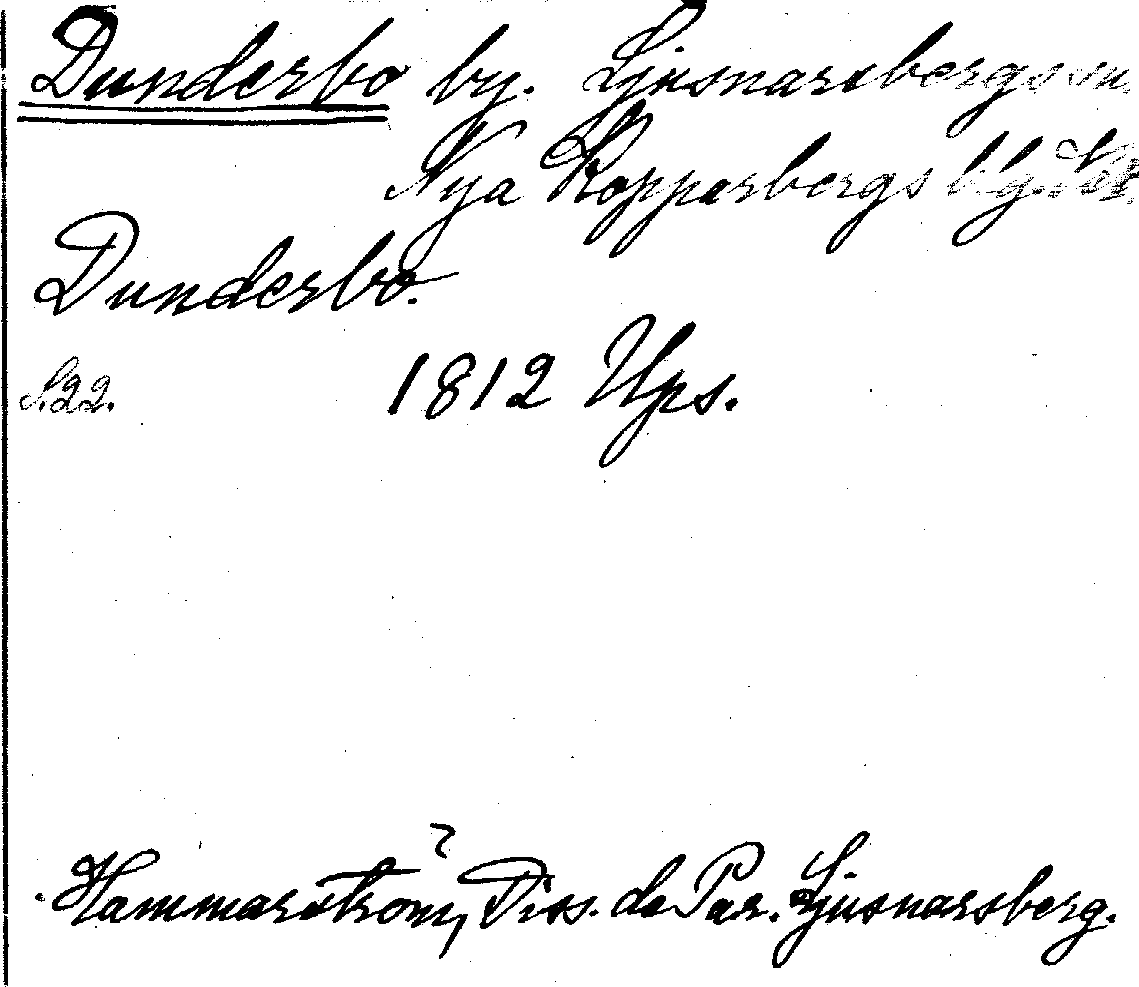 Dunderbo by. Ljusnarsbergs sn.
Nya Kopparbergs blg.
Dunderbo.
S.22. 1812 Ups.
?
Hammarström, Diss. de Par. Ljusnarsberg.